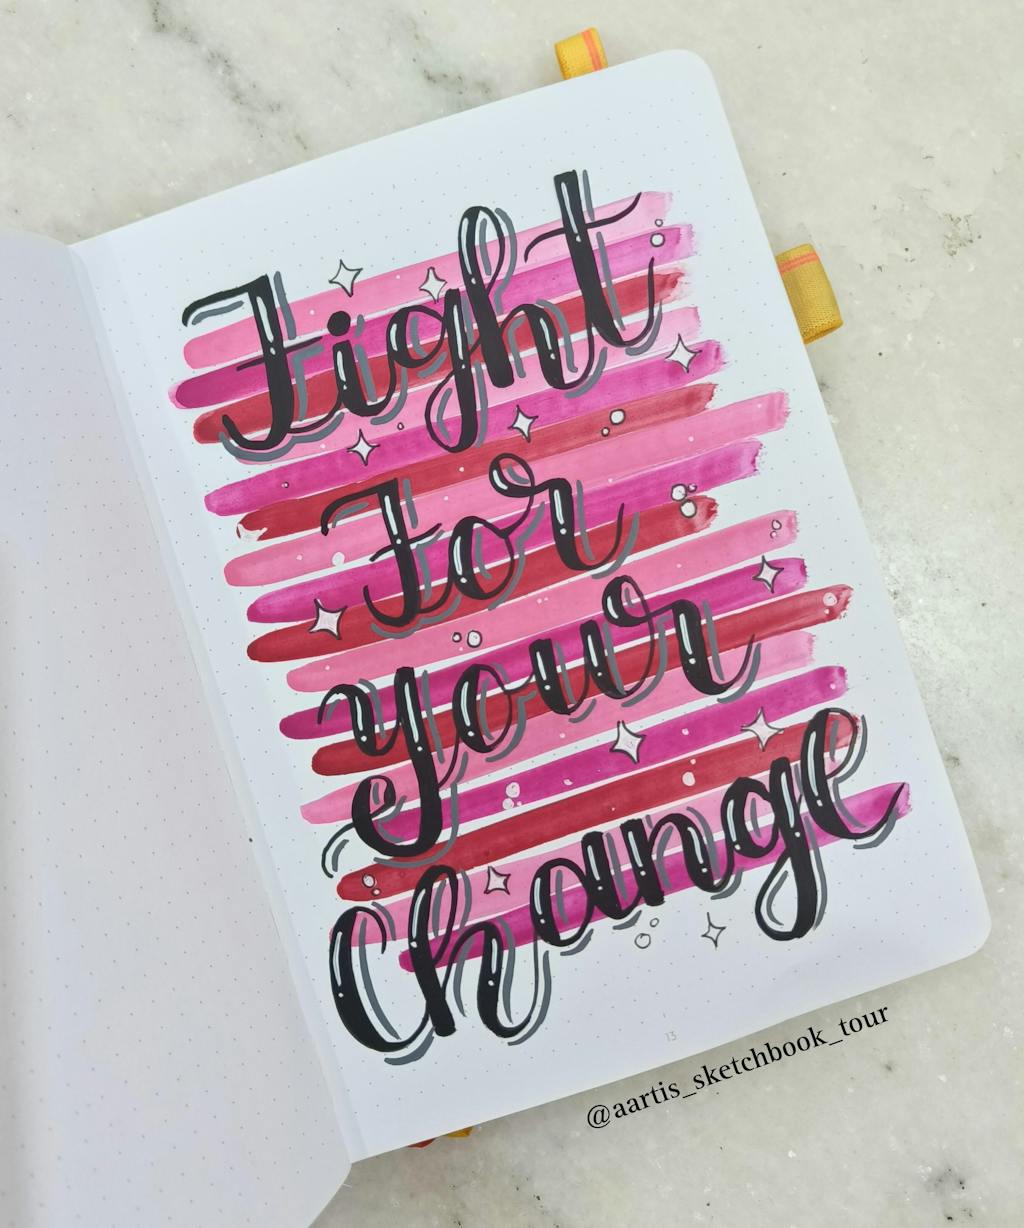 Fight
For
your
Change
13
@aartis_sketchbook_tour